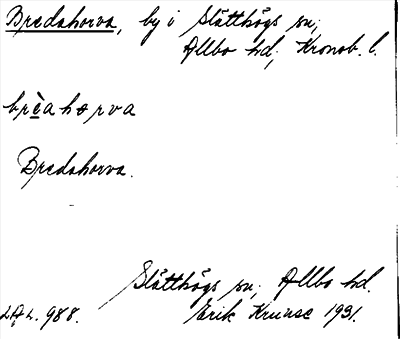 Bredahorva, by i Slätthögs sn,
Allbo hd, Kronob. l.
brèahorva
Bredahorva.
Slätthögs sn, Allbo hd.
LAL. 988. Erik Kruuse 1931.